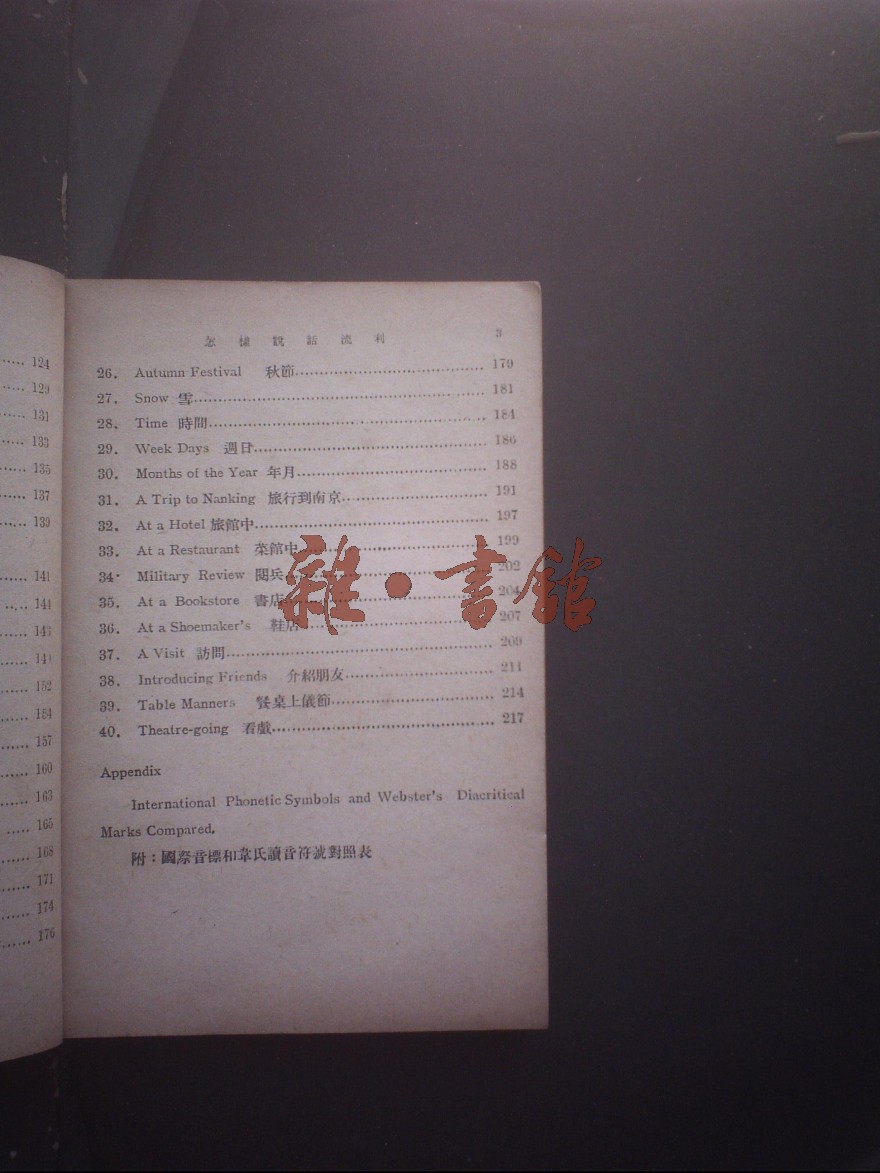 124
129
131
133
135
137
139
141
141
143
152
154
157
160
163
165
168
171
174
176
怎樣說話流利 3
26. Autumn Festival 秋節 179
27. Snow 雪 181
28. Time 時間 184
29. Week Days 週日 186
30. Months of the Year 年月 188
31. A Trip to Nanking 旅行到南京 191
32. At a Hotel 旅館中 197
33. At a Restaurant 菜館中 199
34. Military Review 閱兵 202
35. At a Bookstore 書店 204
36. At a Shoemaker's 鞋店 207
37. A Visit 訪問 209
38. Introducing Friends 介紹朋友 211
39. Table Manners 餐桌上儀節 214
40. Theatre-going 看戲 217
Appendix
International Phonetic Symbols and Webster's Diacritical
Marks Compared.
附：國際音標和韋氏讀音符號對照表
雜·書館